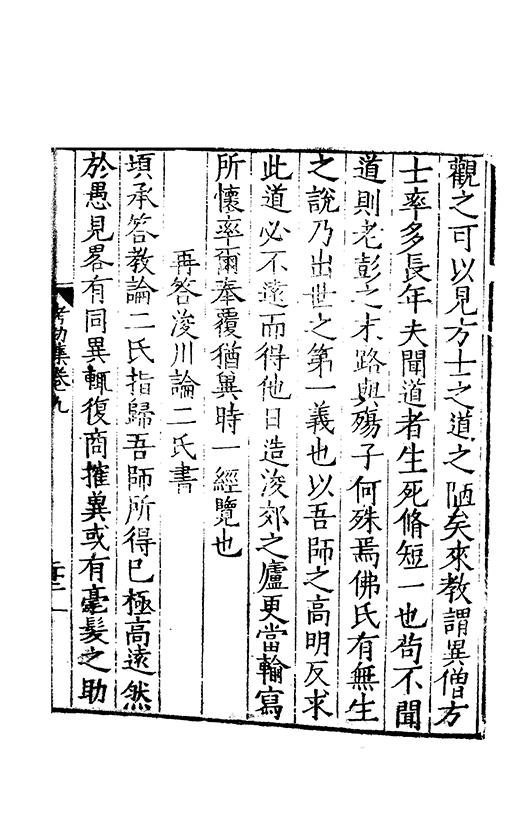 觀之可以見方士之道之陋矣來教謂異僧方
士率多長年夫聞道者生死脩短一也茍不聞
道則老彭之末路與殤子何殊焉佛氏有無生
之說乃出世之第一義也以吾師之高明反求
此道必不遠而得他日造浚郊之廬更當輸寫
所懷率爾奉覆猶冀時一經覽也
再答浚川論二氏書
頃承答教論二氏指歸吾師所得已極高遠然
於愚見畧有同異輒復商搉冀或有毫髪之助
考功集卷九